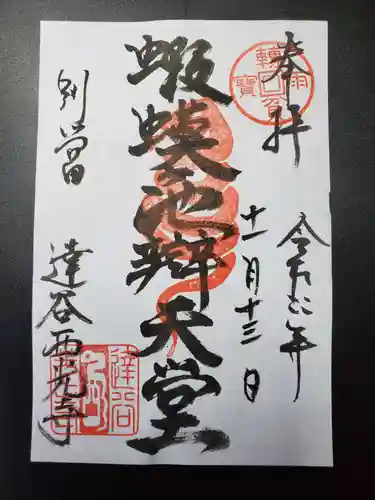 奉拝
令和年
十一月十三日
蝦蟆池辯天堂
別當
達谷西光寺
達谷